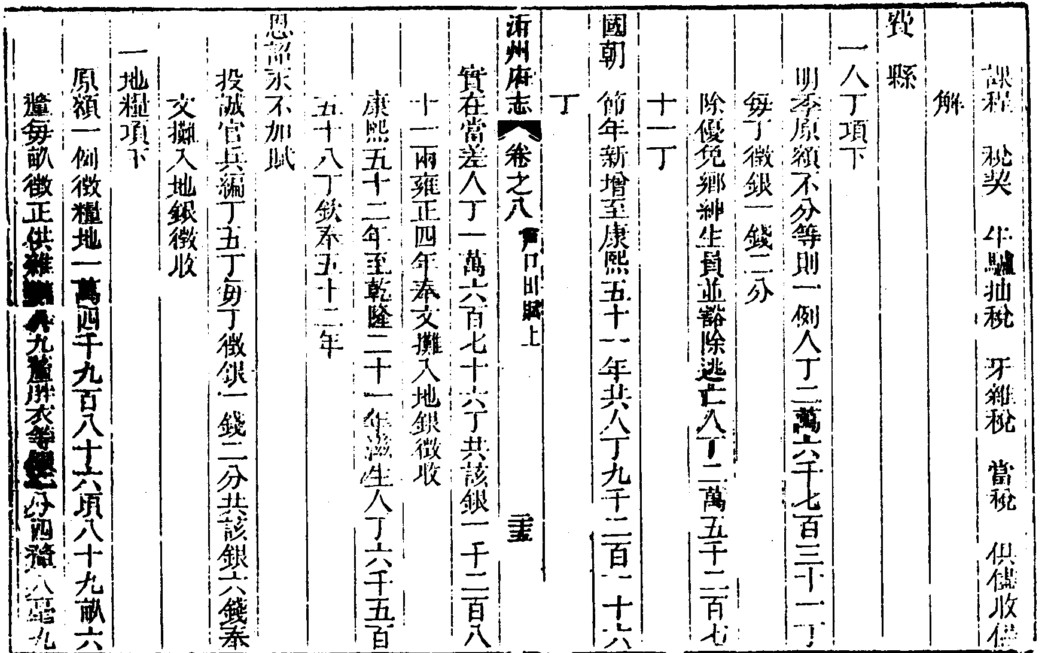 課程　稅契　牛驢抽稅　牙雜稅　當稅　供儘收儘
解
費縣
一人丁項下
明季原額不分等則一例人丁二萬六千七百三十一丁
每丁徵銀一錢二分
除優免鄉紳生員並豁除逃亡人丁二萬五千二百七
十一丁
國朝　節年新增至康熙五十一年共人丁九千二百一十六
丁
沂州府志　卷之八　戶口田賦上
實在當差人丁一萬六百七十六丁共該銀一千二百八
十一兩雍正四年奉文攤入地銀徵收
康熙五十二年至乾隆二十一年滋生人丁六千五百
五十八丁欽奉五十二年
恩詔永不加賦
投誠官兵編丁五丁每丁徵銀一錢二分共該銀六錢奉
文攤入地銀徵收
一地糧項下
原額一例徵糧地一萬四千九百八十六頃八十九畝六
釐每畝徵正供雜 九釐 衣等 分四釐八毫九